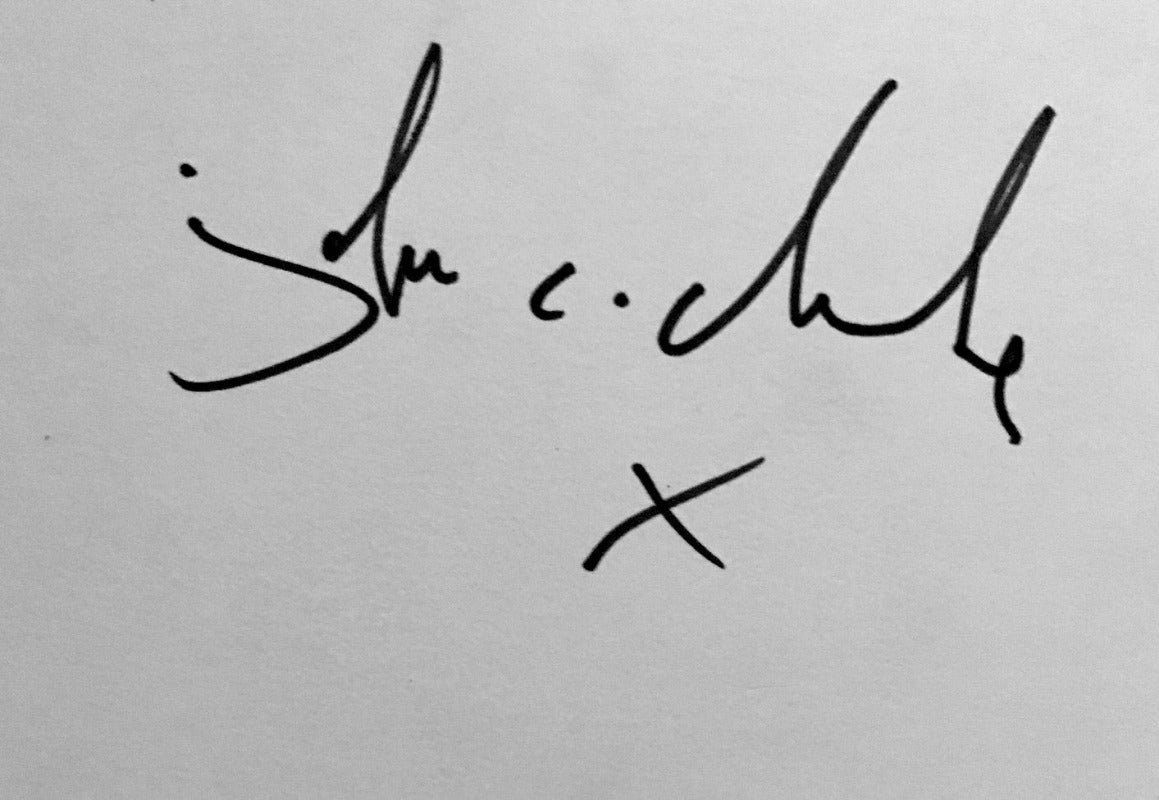 john c. clarke
x